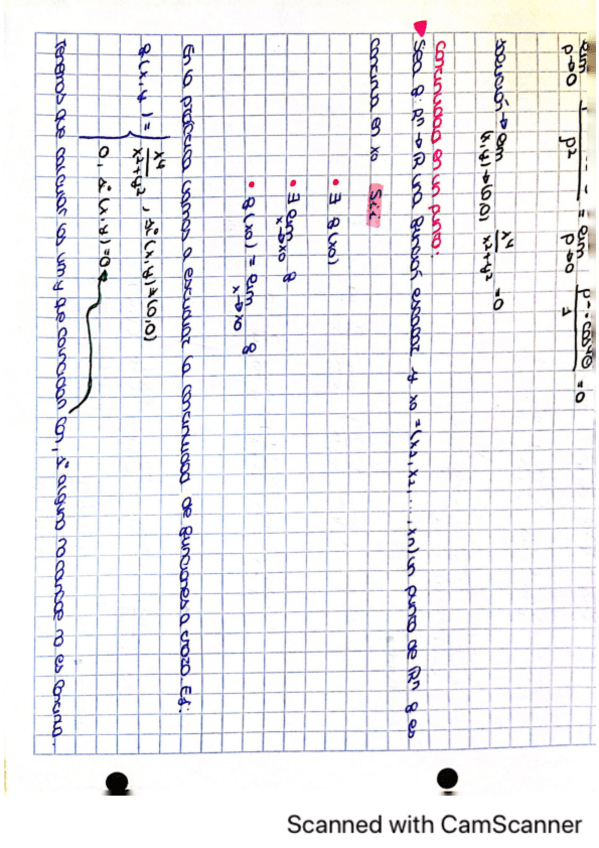 lim p→0 p² = lim p→0 p² · cos⁴θ / 1 = 0
solución → lim (x,y)→(0,0) x⁴/x²+y² = 0
continuidad en un punto:
Sea f: ℝⁿ → ℝ una función escalar y x0 = (x1, x2, ..., xn) un punto de ℝⁿ f es
continua en x0 Sii:
• ∃ f(x0)
• ∃ lim x→x0 f
• f(x0) = lim x→x0 f
En la práctica vamos a estudiar la continuidad de funciones a trozo. Ej:
f(x,y) = { x⁴/x²+y², si (x,y)≠(0,0)
0, si (x,y)=0
Tenemos que calcular los lim y que coincidan con, si alguno no coincide no es continua.
Scanned with CamScanner